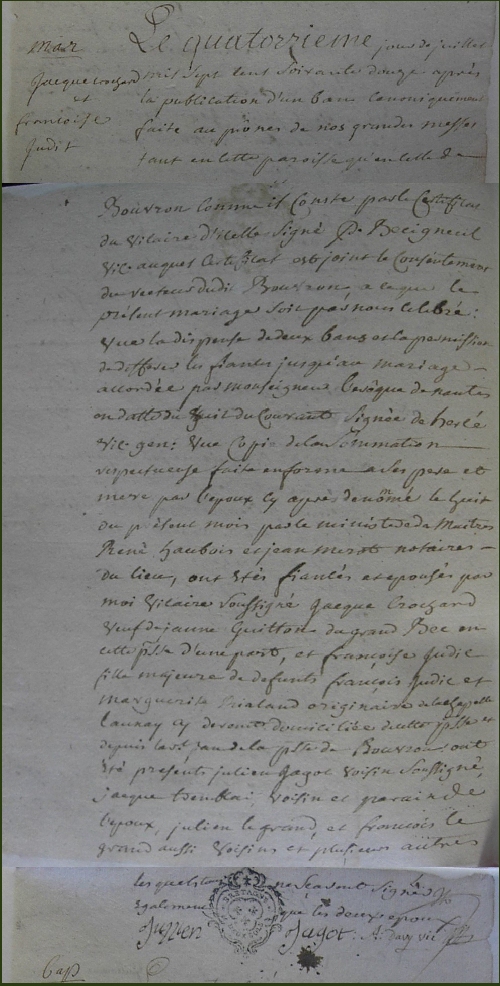 mar
Jacque Crochard
et
francoise
Judit
Le quatorzieme jour de juillet
mil sept cent soixante douze après
la publication d'un banc canoniquement
faite au prônes de nos grandes messes
tant en cette paroisse qu'en celle de
Bouvron comme il conste par le Certificat
du vicaire d'icelle signé P. Becigneul
vic. auquel certificat est joint le Consentement
du recteur dudit Bouvron, a ce que le
présent mariage soit par nous celebré:
vue la dispense de deux bans et la permission
de differer les fiantés jusqu'au mariage
accordée par monseigneur l'evêque de nantes
en datte du huit du Courant signée de herlé
vic. gen: vue Copie de la Sommation
respectueuse faite en forme a ses pere et
mere par l'epoux cy après denommé le huit
du présent mois par le ministere de Maitres
René haubois et jean merot notaires
du lieu, ont étés fiantés et epousés par
moi vicaire soussigné Jacque Crochard
veuf de jeanne Guitton du grand Bee en
cette psse d'une part, et françoise Judic
fille majeure de defunts françois Judic et
marguerite rialand originaire de la chappelle
launay cy devant domiciliée de cette psse et
depuis la st jean de la psse de Bouvron: ont
été presents julien Jagot voisin soussigné,
jacque tremblai voisin et parain de
l'epoux, julien le grand, et francois le
grand aussi voisins et plusieurs autres
lesquels ne sçavent signer
egalement que les deux epoux
Juzzen Jagot. A. Davy vic
Bap